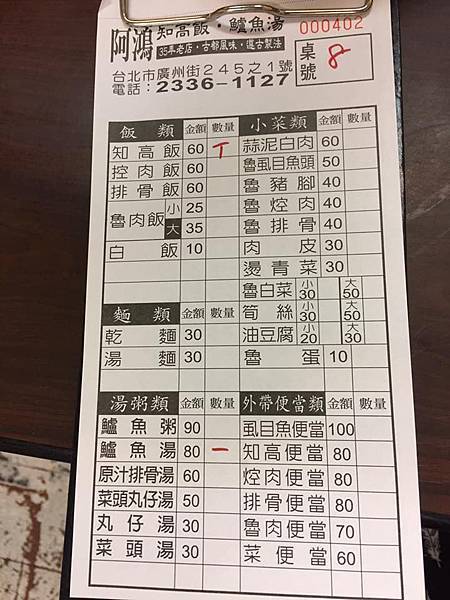 阿鴻 知高飯・鱸魚湯
35年老店・古都風味・遵古製法
000402
台北市廣州街245之1號
電話：2336-1127
桌號 8
飯類 金額 數量
知高飯 60 T
控肉飯 60
排骨飯 60
魯肉飯 小 25
大 35
白飯 10
麵類 金額 數量
乾麵 30
湯麵 30
湯粥類 金額 數量
鱸魚粥 90
鱸魚湯 80 一
原汁排骨湯 60
菜頭丸仔湯 50
丸仔湯 30
菜頭湯 30
小菜類 金額 數量
蒜泥白肉 60
魯虱目魚頭 50
魯豬腳 40
魯焢肉 40
魯排骨 40
肉皮 30
燙青菜 30
魯白菜 小30 大50
筍絲 小30 大50
油豆腐 小20 大30
魯蛋 10
外帶便當類 金額 數量
虱目魚便當 100
知高便當 80
焢肉便當 80
排骨便當 80
魯肉便當 70
菜便當 60